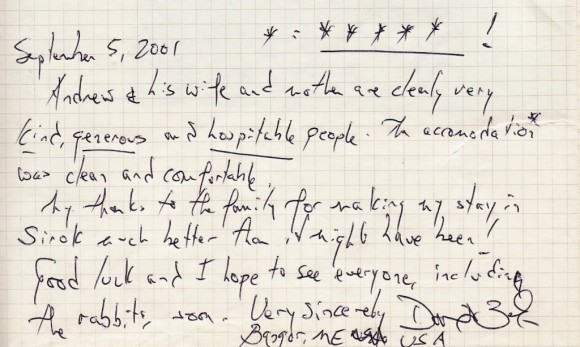 * = * * * * * !
September 5, 2001
Andrew & his wife and mother are clearly very
kind, generous and hospitable people. The accomodation*
was clean and comfortable.
My thanks to the family for making my stay in
Sirok much better than it might have been!
Good luck and I hope to see everyone, including
the rabbits, soon. Very Sincerely
Bangor, ME USA